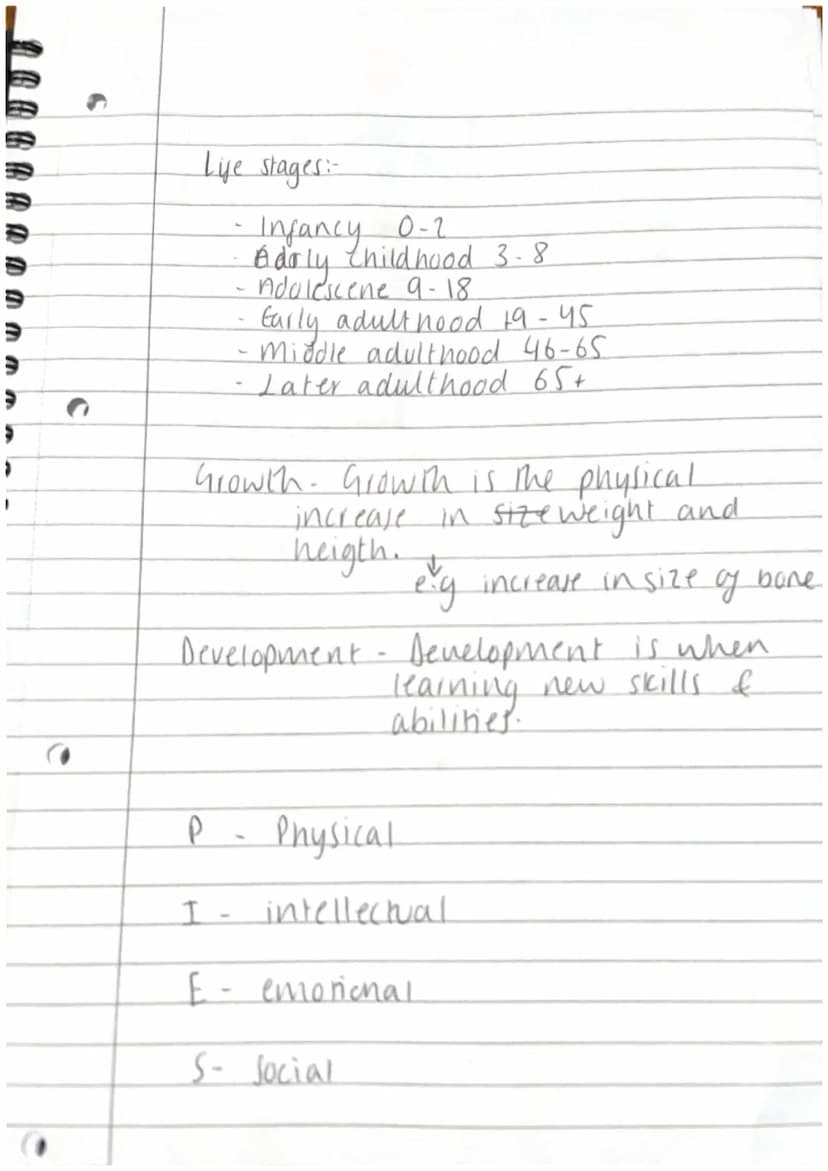 Life stages:-
- Infancy 0-2
- Early childhood 3-8
- Adolescene 9-18
- Early adulthood 19-45
- Middle adulthood 46-65
- Later adulthood 65+
Growth - Growth is the physical
increase in size weight and
heigth.
e.g increase in size of bone
Development - Development is when
learning new skills &
abilities.
P - Physical
I - intellectual
E - emotional
S - Social